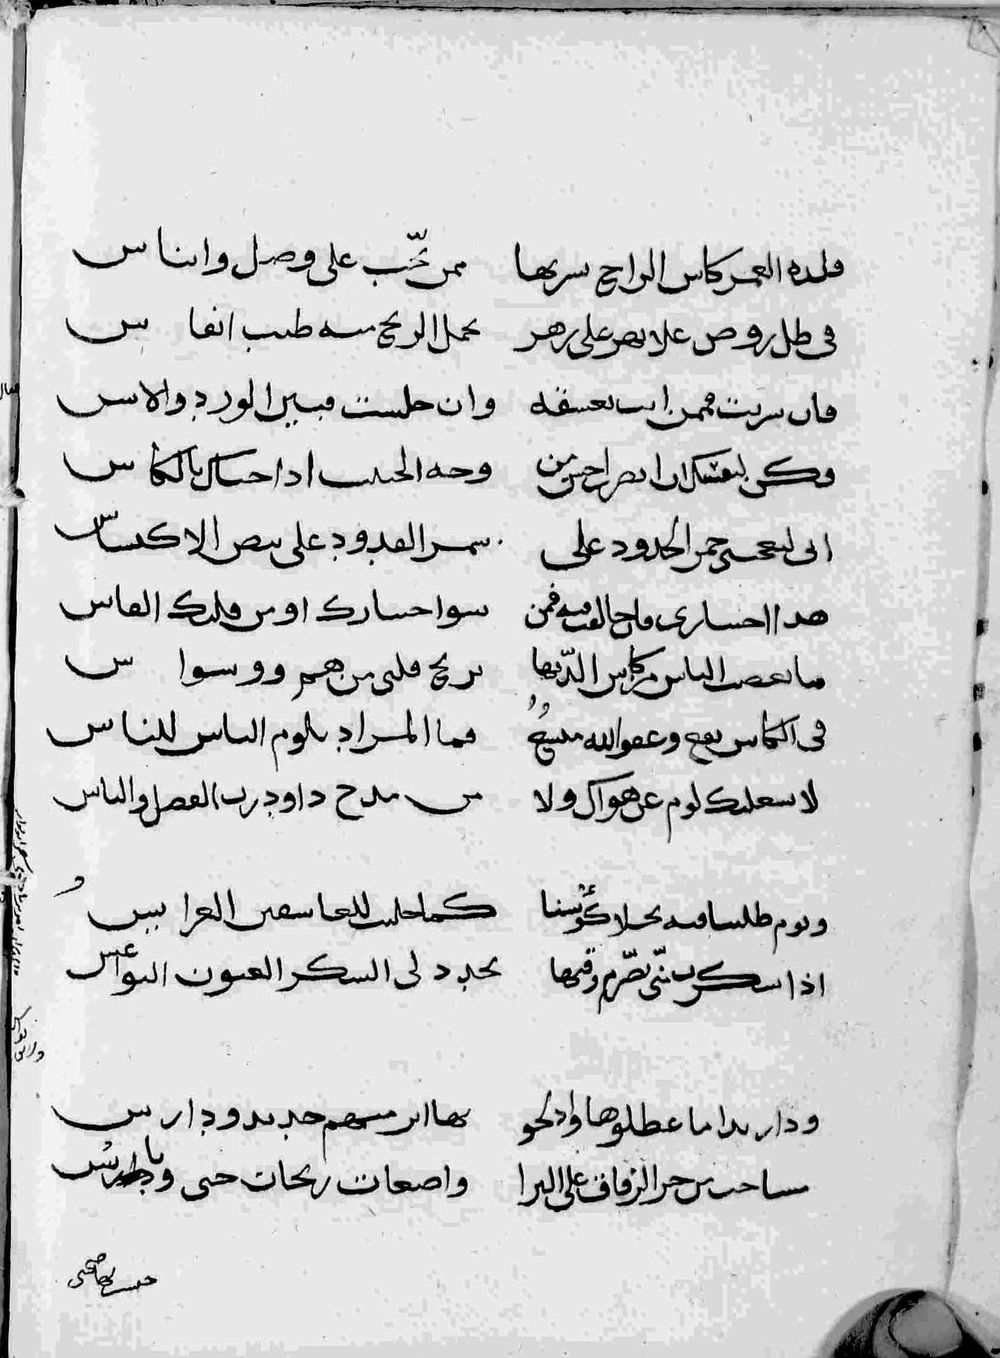 فلذة العمر كاس الراح تشربها ممن تحب على وصل وايناس
في ظل روض علا نهر على زهر تحمل الريح منه طيب انفاس
فان شربت فممن انت تعشقه وان جلست فبين الورد والاس
وكن لنفسك ان ابصر احسن من وجه الحبيب اذا حياك بالكاس
اني ليعجبني حمر الخدود على سمر القدود على بيض الاكياس
هذا اختياري فمن سوا اختيارك اومن قلبك القاس
ما تغضب الناس من كاس الذ بها تريح قلبي من هم ووسواس
في الكاس نفع وعفو الله متسع فما المراد بلوم الناس للناس
لا يشغلنك لوم عن هواك ولا من مدح داود رب الفضل والباس
ويوم ظللنا فيه تجلا كؤسنا كما جليت للعاشقين العرايس
اذا سكرتني تصرم وقتها تجدد لي السكر العيون النواعس
ودار نداما عطلوها وادلجوا بها اثر منهم جديد ودارس
مساحب من جر الزقاق على الثرا واضغاث ريحان جني ويابس